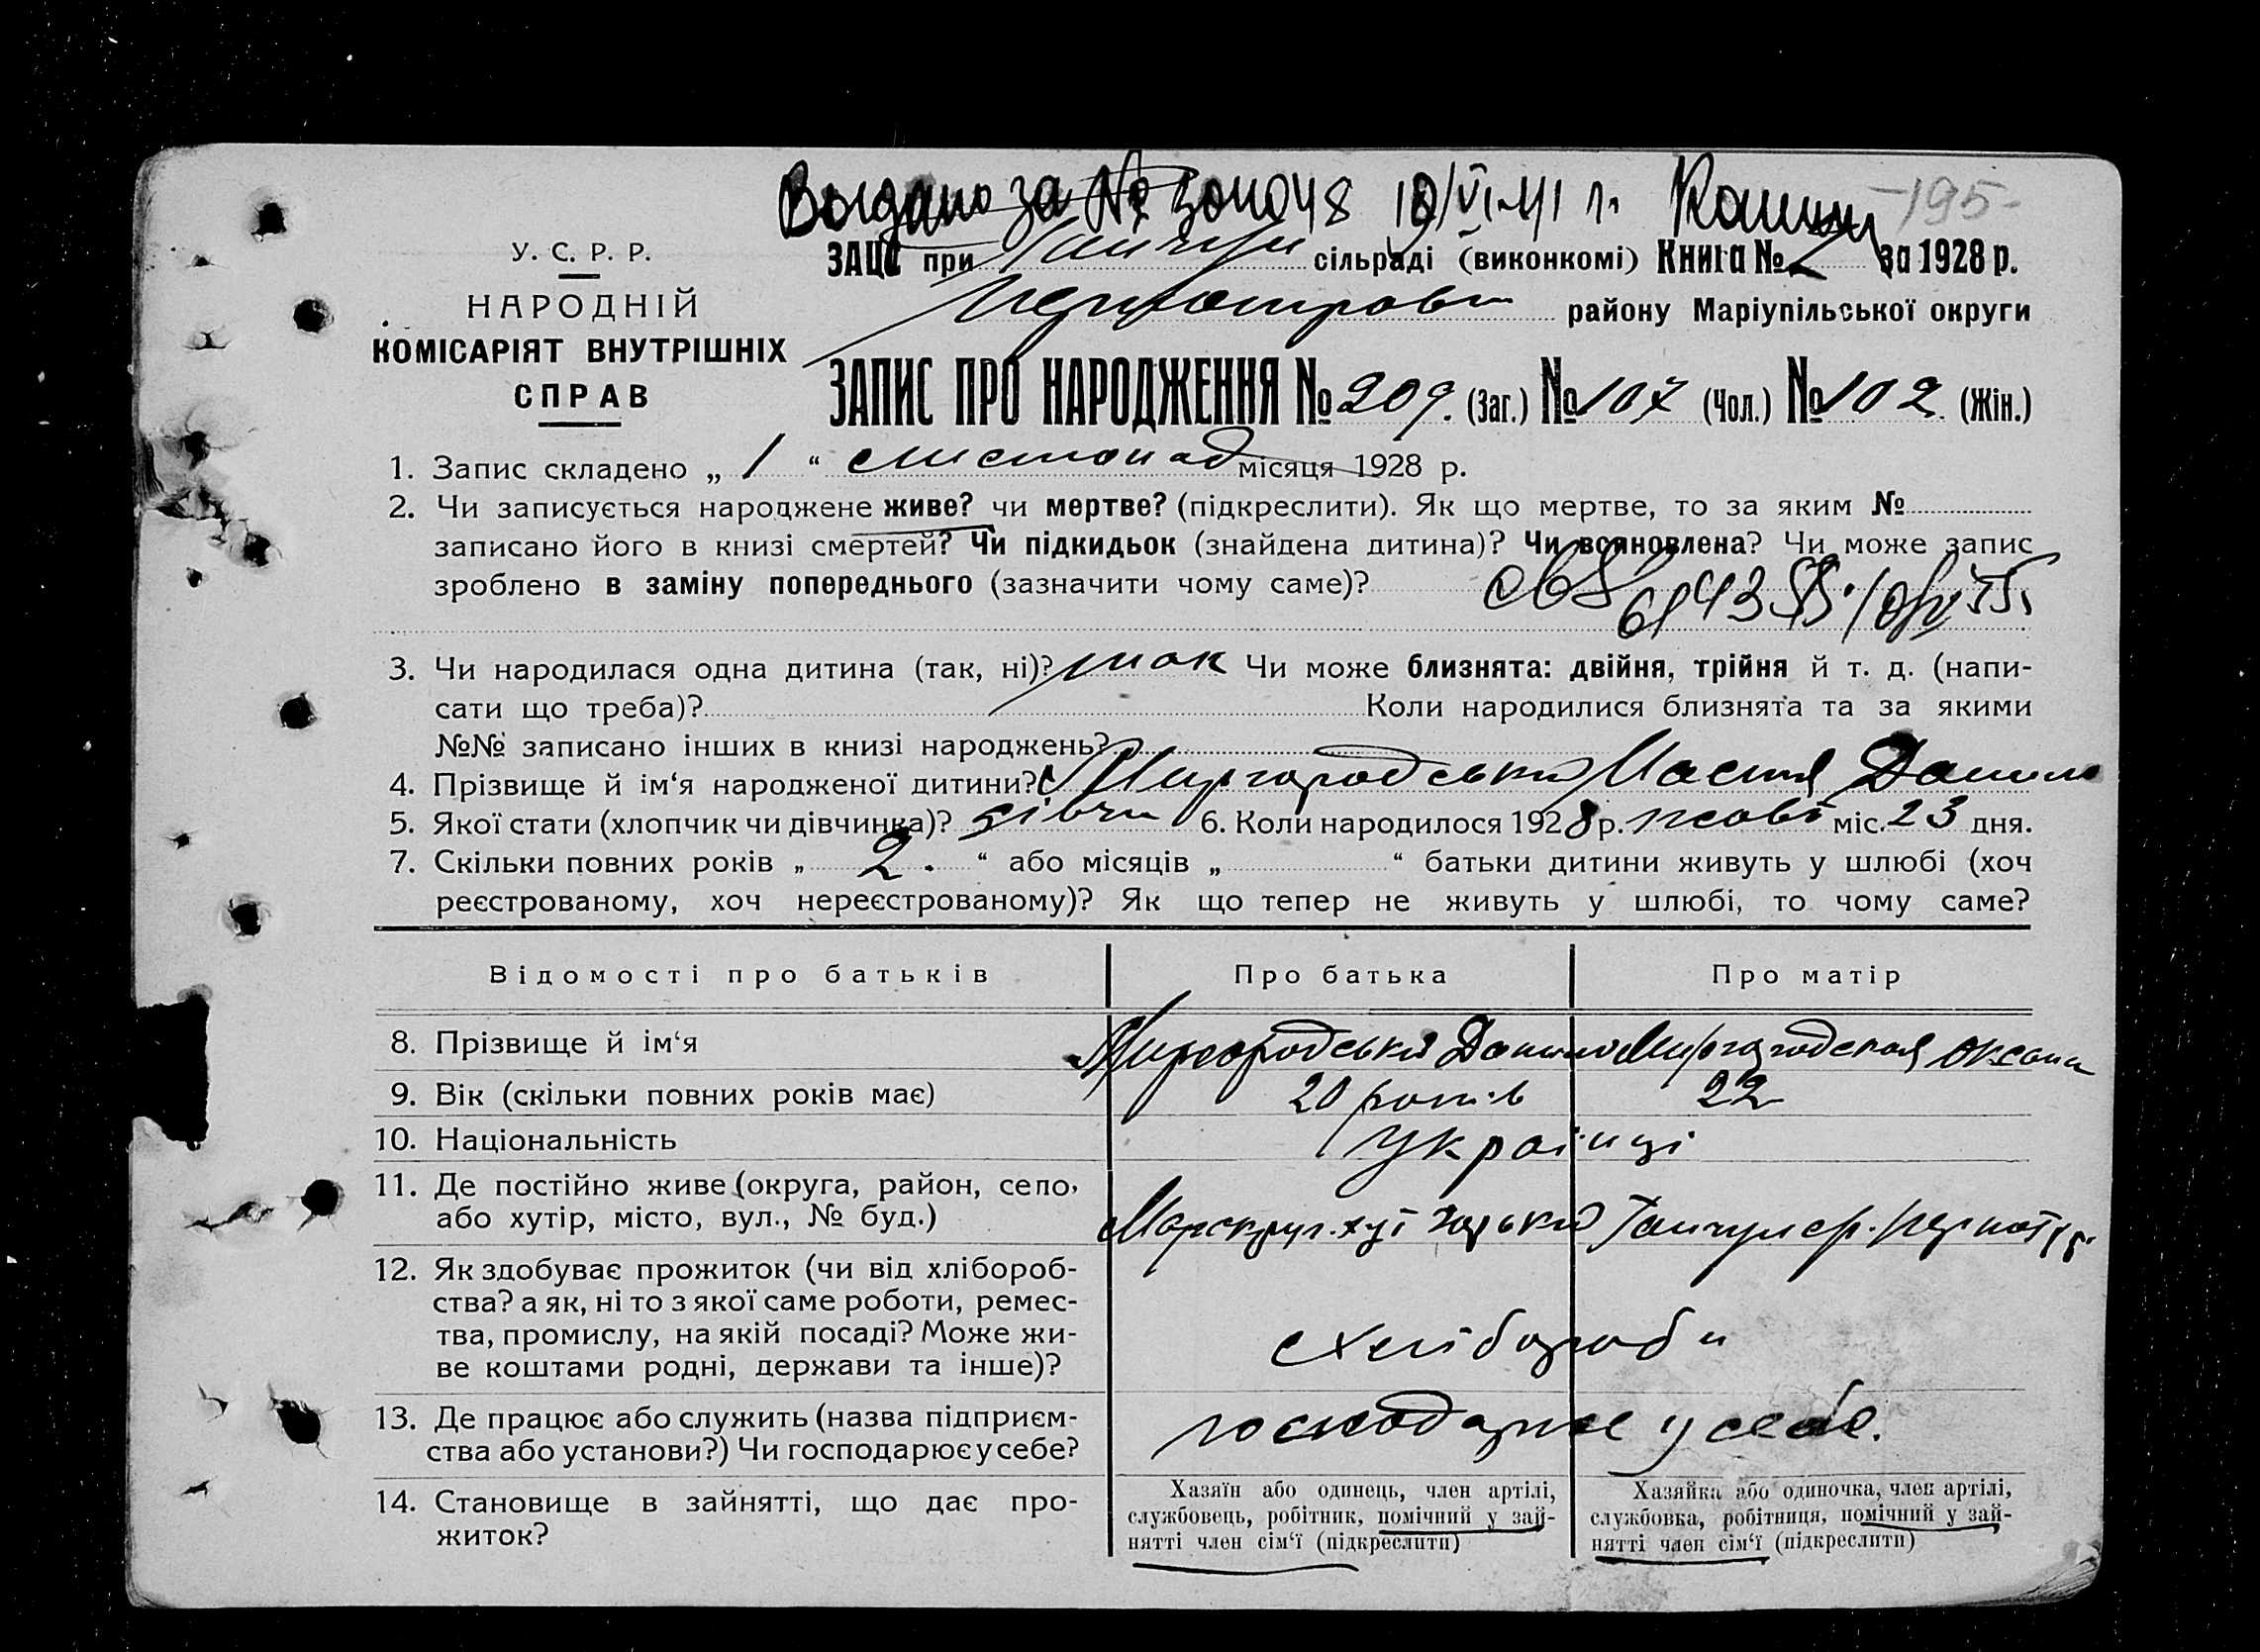 Выдано за № 10/VI-41 г. -195-
У. С. Р. Р.
НАРОДНІЙ
КОМІСАРІЯТ ВНУТРІШНІХ
СПРАВ
ЗАЦС при сільраді (виконкомі) Книга № 2 за 1928 р.
району Маріупільської округи
ЗАПИС ПРО НАРОДЖЕННЯ № 209. (Заг.) № 107 (Чол.) № 102. (Жін.)
1. Запис складено „ 1 “ листопад місяця 1928 р.
2. Чи записується народжене живе? чи мертве? (підкреслити). Як що мертве, то за яким №
записано його в книзі смертей? Чи підкидьок (знайдена дитина)? Чи всиновлена? Чи може запис
зроблено в заміну попереднього (зазначити чому саме)?
3. Чи народилася одна дитина (так, ні)? так Чи може близнята: двійня, трійня й т. д. (напи-
сати що треба)? Коли народилися близнята та за якими
№№ записано інших в книзі народжень?
4. Прізвище й ім‘я народженої дитини? Миргородська Настя Данил
5. Якої стати (хлопчик чи дівчинка)? дівчи 6. Коли народилося 1928 р. жовт міс. 23 дня.
7. Скільки повних років „ 2. “ або місяців „ “ батьки дитини живуть у шлюбі (хоч
реєстрованому, хоч нереєстрованому)? Як що тепер не живуть у шлюбі, то чому саме?
Відомості про батьків Про батька Про матір
8. Прізвище й ім‘я Миргородський Данило Миргородская Оксана
9. Вік (скільки повних років має) 20 років 22
10. Національність Українці
11. Де постійно живе (округа, район, село,
або хутір, місто, вул., № буд.)
12. Як здобуває прожиток (чи від хлібороб-
ства? а як, ні то з якої саме роботи, ремес-
тва, промислу, на якій посаді? Може жи-
ве коштами родні, держави та інше)?
хлібороби
13. Де працює або служить (назва підприєм-
ства або установи?) Чи господарює у себе?
господарює у себе.
14. Становище в зайнятті, що дає про-
житок?
Хазяїн або одинець, член артілі,
службовець, робітник, помічний у зай-
нятті член сім‘ї (підкреслити)
Хазяйка або одиночка, член артілі,
службовка, робітниця, помічний у зай-
нятті член сім‘ї (підкреслити)